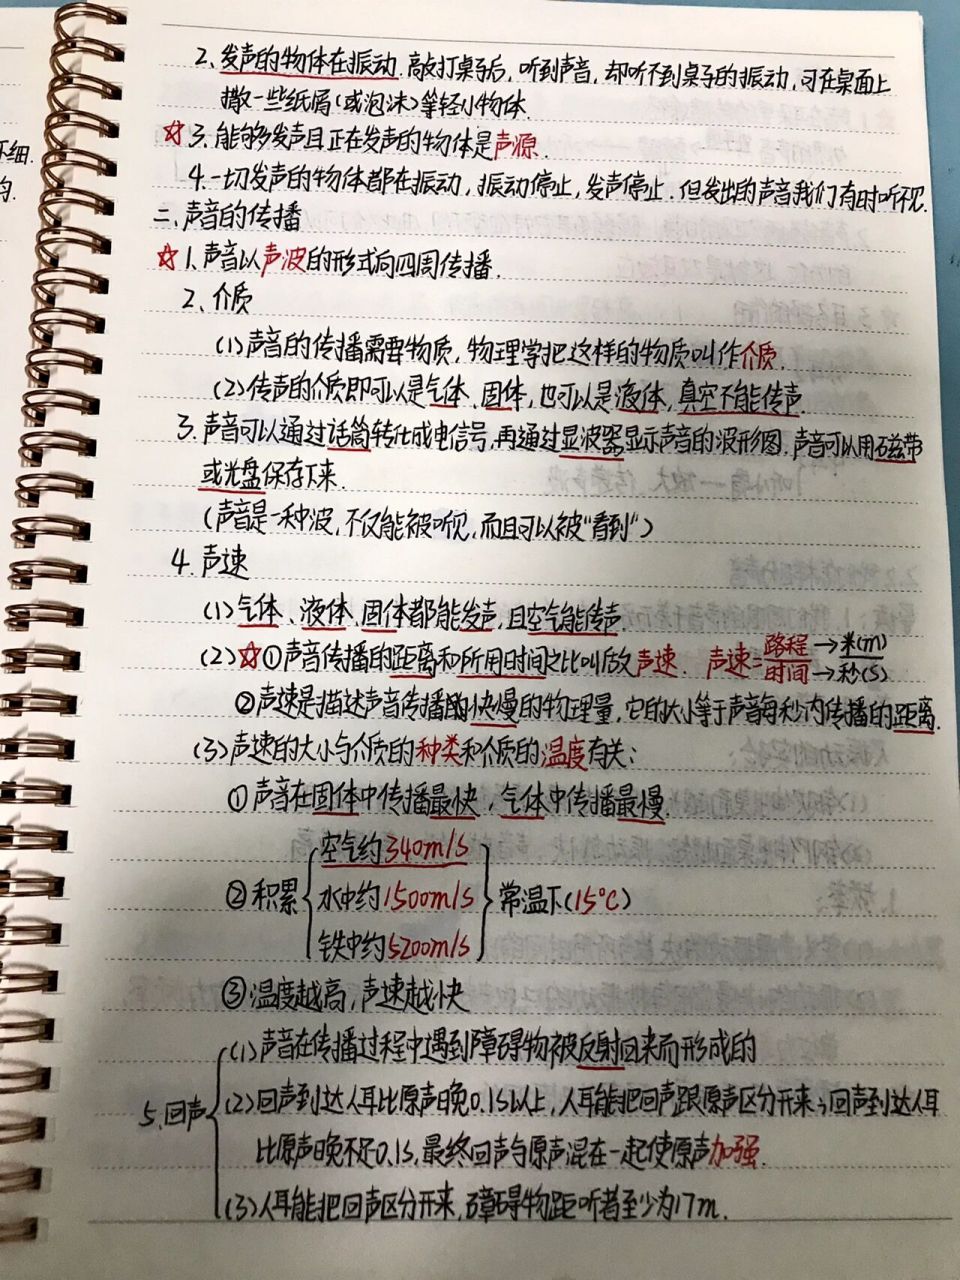 坏细.
约.
2、发声的物体在振动.敲打桌子后,听到声音,却听不到桌子的振动,可在桌面上
撒一些纸屑(或泡沫)等轻小物体.
☆3.能够发声且正在发声的物体是声源.
4.一切发声的物体都在振动,振动停止,发声停止.但发出的声音我们有时听不见.
二.声音的传播
☆1.声音以声波的形式向四周传播.
2、介质
(1)声音的传播需要物质,物理学把这样的物质叫作介质.
(2)传声的介质即可以是气体、固体,也可以是液体,真空不能传声.
3.声音可以通过话筒转化成电信号,再通过显波器显示声音的波形图.声音可以用磁带
或光盘保存下来.
(声音是一种波,不仅能被听见,而且可以被“看到”)
4.声速
(1)气体、液体、固体都能发声,且空气能传声.
(2)☆①声音传播的距离和所用时间之比叫做声速. 声速=路程→米(m)
时间→秒(s)
②声速是描述声音传播的快慢的物理量,它的大小等于声音每秒内传播的距离.
(3)声速的大小与介质的种类和介质的温度有关:
①声音在固体中传播最快,气体中传播最慢.
空气约340m/s
②积累 水中约1500m/s 常温下(15℃)
铁中约5200m/s
③温度越高,声速越快
(1)声音在传播过程中遇到障碍物被反射回来而形成的
5.回声 (2)回声到达人耳比原声晚0.1s以上,人耳能把回声跟原声区分开来;回声到达人耳
比原声晚不足0.1s,最终回声与原声混在一起使原声加强.
(3)人耳能把回声区分开来,障碍物距听者至少为17m.